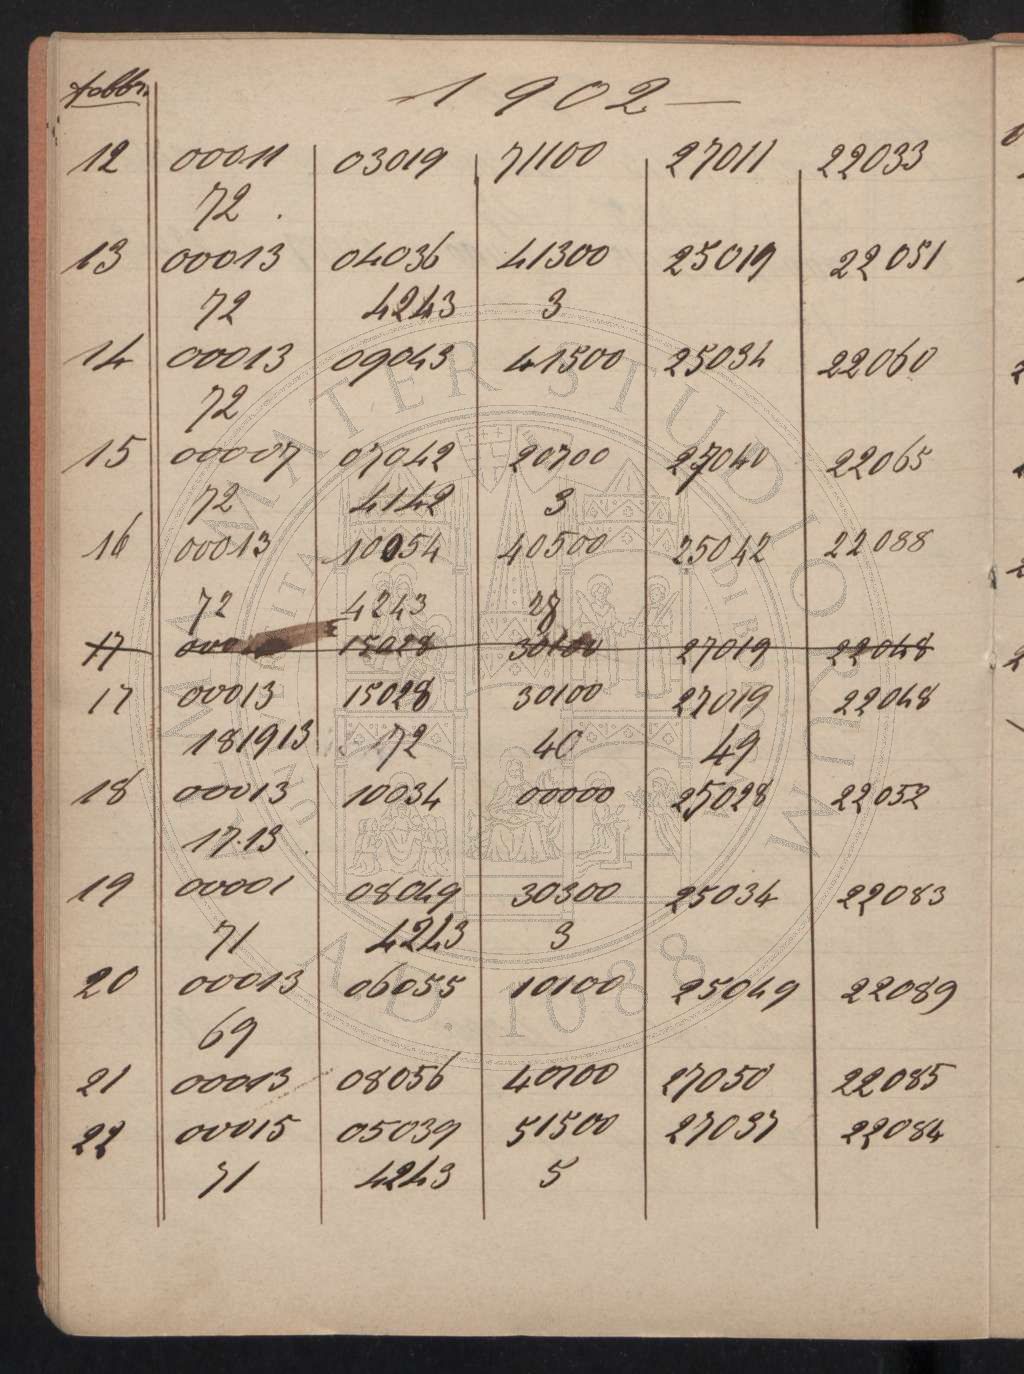 1902
12 00011 03019 71100 27011 22033
72
13 00013 04036 41300 25019 22051
72 4243 3
14 00013 09043 41500 25034 22060
72
15 00007 07042 20700 27040 22065
72 4142 3
16 00013 10054 40500 25042 22088
72 4243
17 15028 30100 27019 22048
17 00013 15028 30100 27019 22048
181913 72 40 49
18 00013 10034 00000 25028 22052
17.13
19 00001 08049 30300 25034 22083
71 4243 3
20 00013 06055 10100 25049 22089
69
21 00013 08056 40100 27050 22085
22 00015 05039 51500 27037 22084
71 4243 5
ALMA MATER STUDIORUM
A.D. 1088